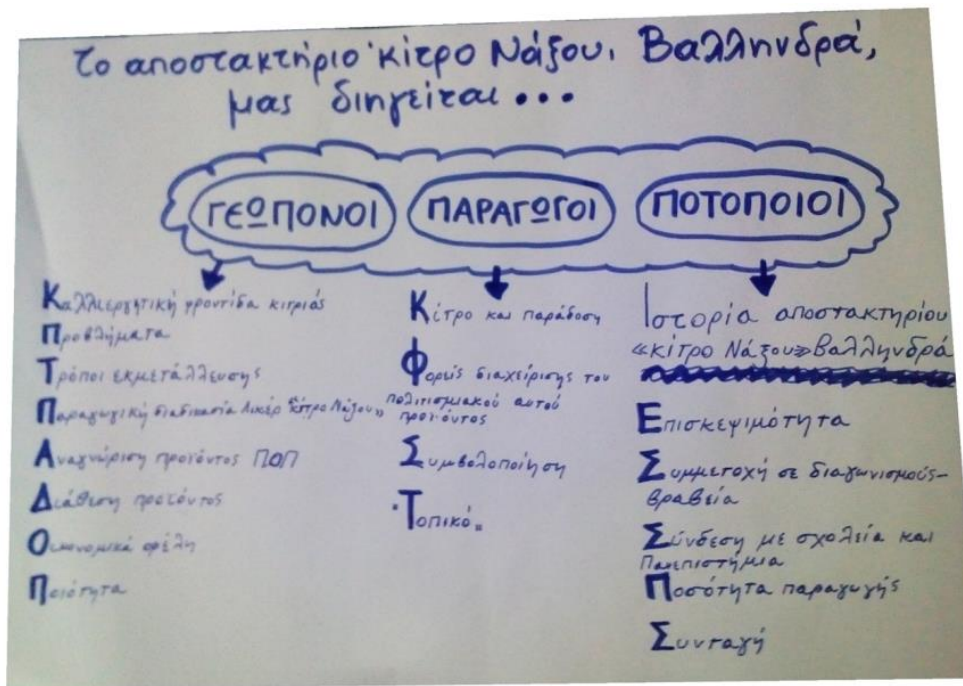 το αποστακτήριο κίτρο Νάξου, Βαλληνδρά,
μας διηγείται...
ΓΕΩΠΟΝΟΙ
ΠΑΡΑΓΩΓΟΙ
ΠΟΤΟΠΟΙΟΙ
Καλλιεργητική φροντίδα κιτριάς
Προβλήματα
Τρόποι εκμετάλλευσης
Παραγωγική διαδικασία Λικέρ "κίτρο Νάξου"
Αναγνώριση προϊόντος ΠΟΠ
Διάθεση προϊόντος
Οικονομικά οφέλη
Ποιότητα
Κίτρο και παράδοση
Φορείς διαχείρισης του
πολιτισμιακού αυτού
προϊόντος
Συμβολοποίηση
"Τοπικό"
Ιστορία αποστακτηρίου
«κίτρο Νάξου» Βαλληνδρά
Επισκεψιμότητα
Συμμετοχή σε διαγωνισμούς-
βραβεία
Σύνδεση με σχολεία και
Πανεπιστήμια
Ποσότητα παραγωγής
Συνταγή